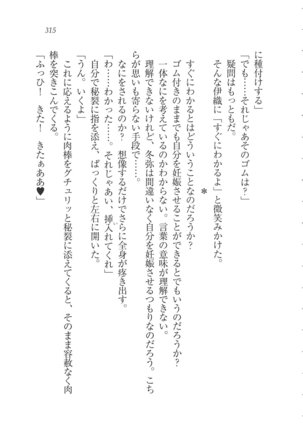 315
に種付けする」
「でも……それじゃあそのゴムは？」
疑問はもっともだ。
そんな伊織に「すぐにわかるよ」と微笑みかけた。
＊
すぐにわかるとはどういうことなのだろうか？
ゴム付きのままでも自分を妊娠させることができるとでもいうのだろうか？
一体なにを考えているのかわからない。言葉の意味が理解できない。
理解できないけれど、冬弥は間違いなく自分を妊娠させるつもりなのだろう。こち
らが思いも寄らない手段で……。
なにをされるのか？　想像するだけでさらに全身が疼き出す。
「わ……わかった……。それじゃあい、挿入れてくれ」
自分で秘裂に指を添え、ぱっくりと左右に開いた。
「うん。いくよ」
これに応えるように肉棒をグチュリッと秘裂に添えてくると、そのまま容赦なく肉
棒を突きこんでくる。
「ふっひ！　きた！　きたぁああ♥」